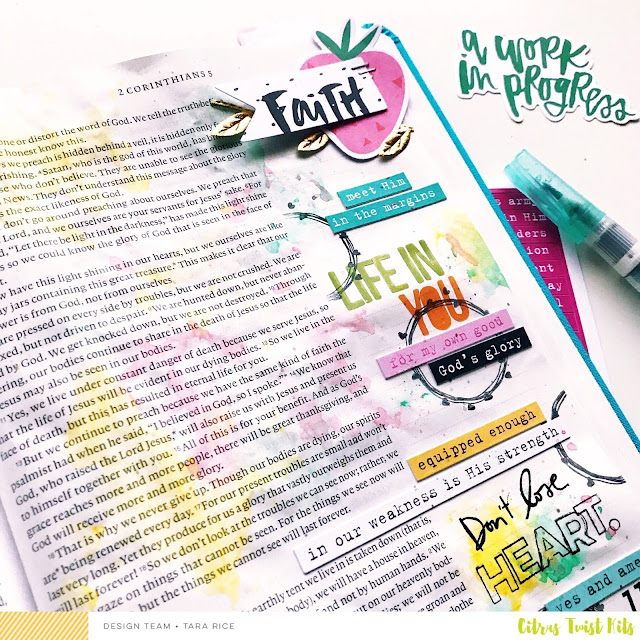 2 CORINTHIANS 5
FAITH
a work
in progress
one or distort the word of God. We tell the truth bef
e honest know this.
s we preach is hidden behind a veil, it is hidden only f
rishing. ⁴Satan, who is the god of this world, has bli
se who don't believe. They are unable to see the glorious
News. They don't understand this message about the glory
the exact likeness of God.
don't go around preaching about ourselves. We preach that
Lord, and we ourselves are your servants for Jesus' sake. ⁶For
d, "Let there be light in the darkness," has made this light shine
s so we could know the glory of God that is seen in the face of
t.
w have this light shining in our hearts, but we ourselves are like
y jars containing this great treasure. This makes it clear that our
wer is from God, not from ourselves.
are pressed on every side by troubles, but we are not crushed. We are
exed, but not driven to despair. ⁹We are hunted down, but never aban-
d by God. We get knocked down, but we are not destroyed. ¹⁰Through
ering, our bodies continue to share in the death of Jesus so that the life
Jesus may also be seen in our bodies.
Yes, we live under constant danger of death because we serve Jesus, so
hat the life of Jesus will be evident in our dying bodies. ¹²So we live in the
face of death, but this has resulted in eternal life for you.
¹³But we continue to preach because we have the same kind of faith the
psalmist had when he said, "I believed in God, so I spoke." ¹⁴We know that
God, who raised the Lord Jesus, will also raise us with Jesus and present us
to himself together with you. ¹⁵All of this is for your benefit. And as God's
grace reaches more and more people, there will be great thanksgiving, and
God will receive more and more glory.
¹⁶That is why we never give up. Though our bodies are dying, our spirits
are being renewed every day. ¹⁷For our present troubles are small and won't
last very long. Yet they produce for us a glory that vastly outweighs them and
will last forever! ¹⁸So we don't look at the troubles we can see now; rather, we
gaze on things that cannot be seen. For the things we see now will
the things we cannot see will last forever.
earthly tent we live in is taken down (that is,
body), we will have a house in heaven,
and not by human hands. ²We
on our heavenly bod-
meet Him
in the margins
LIFE IN
YOU
for my own good
God's glory
equipped enough
in our weakness is His strength.
Don't lose
HEART.
yes and ame
army
in Him
ders
ion
ent
ay
DESIGN TEAM • TARA RICE
Citrus Twist Kits